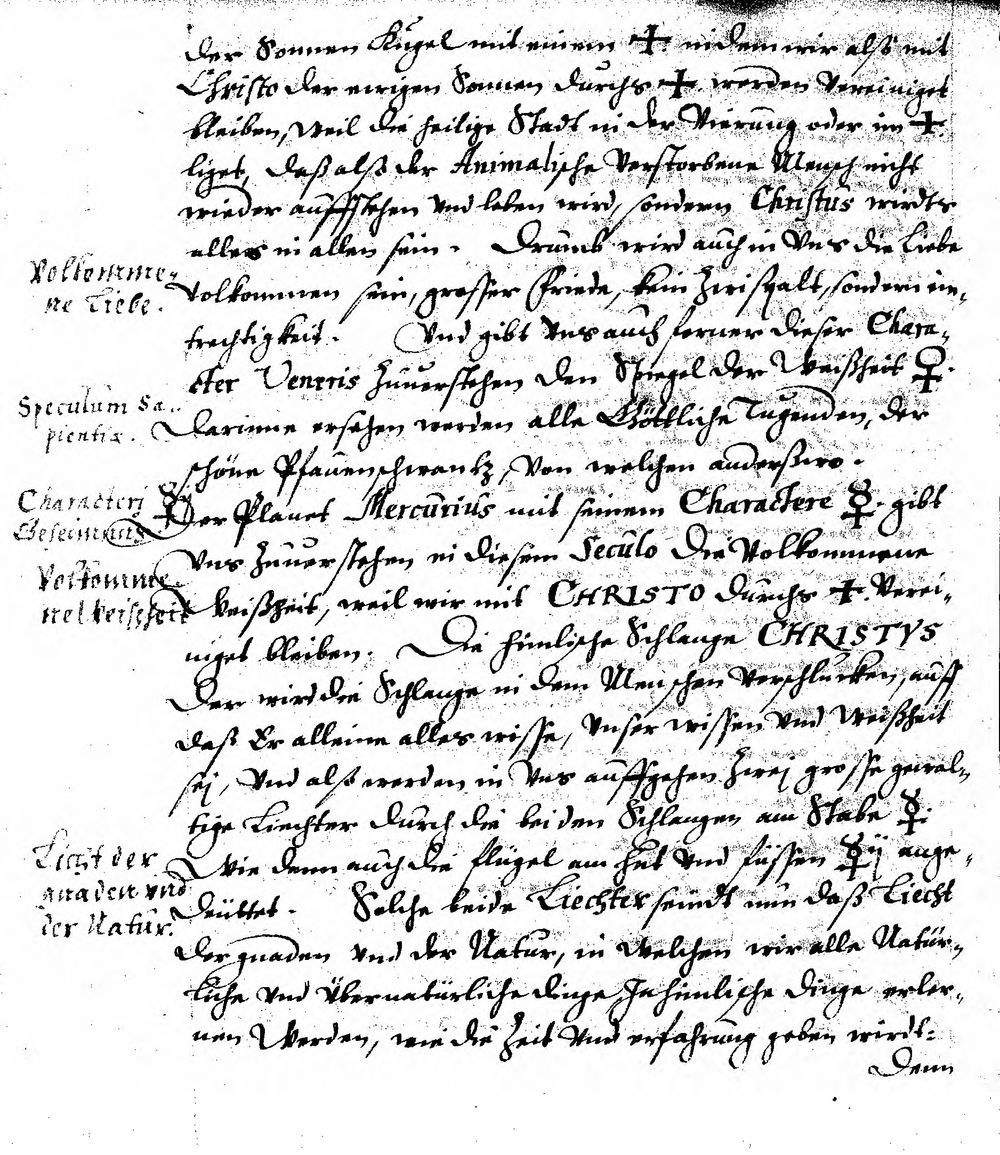 der Sonnen Kugel mit einem ✝. in dem wir alß mit
Christo der ewigen Sonnen durchs ✝. werden vereiniget
bleiben, weil die heilige Stadt in der Vierung oder im ✝.
liget, daß alß der Animalische verstorbene Mensch nicht
wieder aufferstehen und leben wird, sondern Christus wirdts
alles in allen sein. Drumb wird auch in uns die Liebe
Volkomme-
ne Liebe.
volkommen sein, grosser Friede, kein Zwispalt, sondern ein-
trechtigkeit. Und gibt uns auch ferner dieser Chara-
cter Veneris zuuerstehen den Spiegel der Weißheit ♀.
Speculum Sa-
pientiæ.
Darinne ersehen werden alle Göttliche Tugenden, der
schöne Pfauenschwantz, von welchen anderßwo.
Characteri
Geheimnus ☿
Der Planet Mercurius mit seinem Charactere ☿. gibt
uns zuuerstehen in diesem Seculo die volkommene
Volkomme-
ne Weißheit
Weißheit, weil wir mit CHRISTO durchs ✝. verei-
niget bleiben. Die himlische Schlange CHRISTVS
der wird die Schlange in dem Menschen verschlucken, auff
daß Er alleine alles wisse, unser wissen und Weißheit
sej, und alß werden in uns auffgehen zwej grosse gewal-
tige Liechter durch die beiden Schlangen am Stabe ☿.
Licht der
gnaden und
der Natur.
Wie denn auch die flügel am hut und füssen ☿ij ange-
deuttet. Solche beide Liechter seindt nun daß Liecht
der gnaden und der Natur, in welchen wir alle Natür-
liche und übernatürliche dinge, Ja himlische dinge erler-
nen werden, wie die Zeit und erfahrung geben wirdt.
Denn